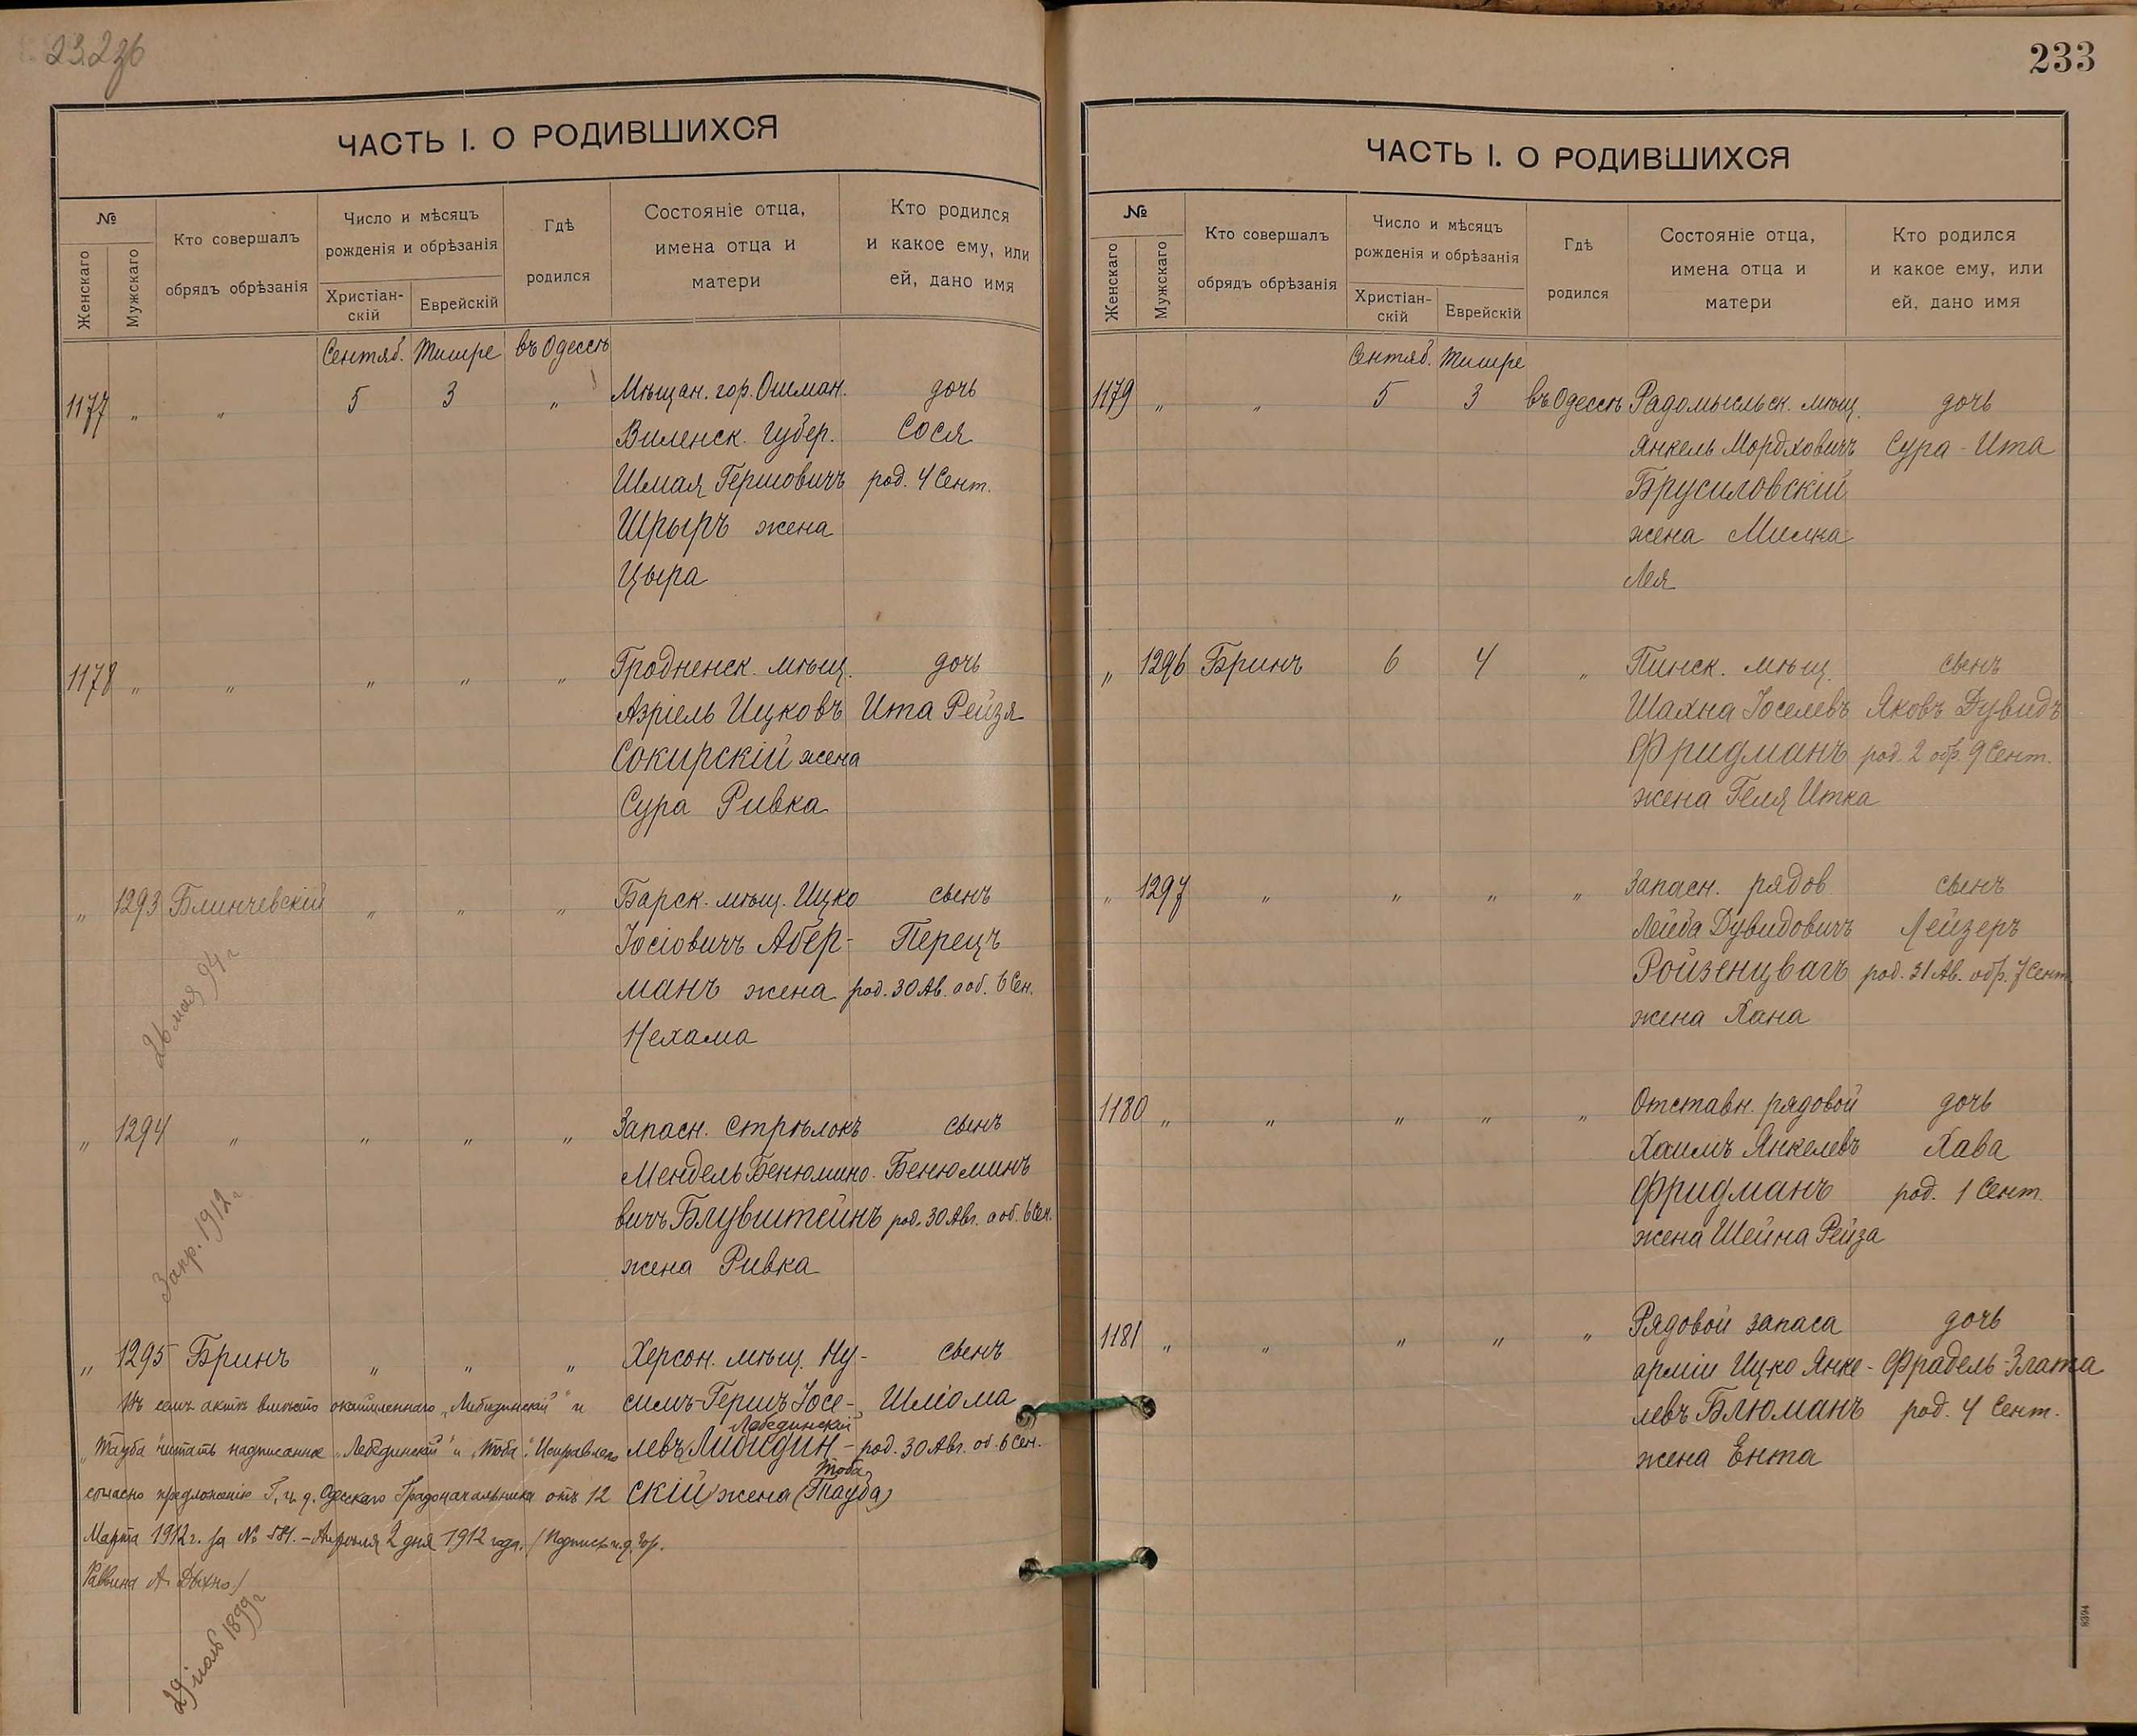 233
ЧАСТЬ I. О РОДИВШИХСЯ
№
Женскаго
Мужскаго
Кто совершалъ
обрядъ обрѣзанія
Число и мѣсяцъ
рожденія и обрѣзанія
Христіан-
скій
Еврейскій
Гдѣ
родился
Состояніе отца,
имена отца и
матери
Кто родился
и какое ему, или
ей, дано имя
Сентяб. Тишре въ Одессѣ
1177 „ „ 5 3 „ Мѣщан. гор. Ошман. дочь
Виленск. губер. Сося
Шмая Гершовичъ род. 4 Сент.
Шрыръ жена
Цыра
1178 „ „ „ „ „ Гродненск. мѣщ. дочь
Азріель Ицковъ Ита Рейзя
Сокирскій жена
Сура Ривка
„ 1293 Блинчевскій „ „ „ Барск. мѣщ. Ицко сынъ
Іосіовичъ Абер- Перецъ
манъ жена род. 30 Ав. а об. 6 Сен.
Нехама
26 мая 94 г
„ 1294 „ „ „ „ Запасн. стрѣлокъ сынъ
Мендель Бенюмино- Бенюминъ
вичъ Блувштейнъ род. 30 Авг. а об. 6 Сен.
жена Ривка
1912 г
„ 1295 Бринъ „ „ „ Херсон. мѣщ. Ну- сынъ
симъ-Гершъ Іосе- Шліома
Лебединскій
левъ род. 30 Авг. об. 6 Сен.
Тоба
скій жена (Тауба)
Въ семъ актѣ вмѣсто окаймленнаго „ " и
„Тауба" читать надписанное „Лебединскій" и „Тоба". Исправлено
согласно предложенію Г. и. д. Одесскаго Градоначальника отъ 12
Марта 1912 г. за № 581. - Апрѣля 2 дня 1912 года. /Подпись и. д. Гор.
Раввина А. Дыхно/
29 1899 г
233
ЧАСТЬ I. О РОДИВШИХСЯ
№
Женскаго
Мужскаго
Кто совершалъ
обрядъ обрѣзанія
Число и мѣсяцъ
рожденія и обрѣзанія
Христіан-
скій
Еврейскій
Гдѣ
родился
Состояніе отца,
имена отца и
матери
Кто родился
и какое ему, или
ей, дано имя
Сентяб. Тишре
1179 „ „ 5 3 въ Одессѣ Радомысльск. мѣщ. дочь
Янкель Мордховичъ Сура-Ита
Брусиловскій
жена Милка
Лея
„ 1296 Бринъ 6 4 „ Пинск. мѣщ. сынъ
Шахна Іоселевъ Яковъ Дувидъ
Фридманъ род. 2 обр. 9 Сент.
жена Геля Итка
„ 1297 „ „ „ „ Запасн. рядов сынъ
Лейба Дувидовичъ Лейзеръ
Ройзенцвагъ род. 31 Ав. обр. 7 Сент
жена Хана
1180 „ „ „ „ „ Отставн. рядовой дочь
Хаимъ Янкелевъ Хава
Фридманъ род. 1 Сент.
жена Шейна Рейза
1181 „ „ „ „ „ Рядовой запаса дочь
арміи Ицко Янке- Фрадель-Злата
левъ Блюманъ род. 4 Сент.
жена Ента
8394